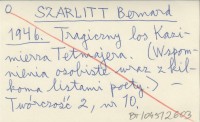 SZARLITT Bernard
1946. Tragiczny los Kazi-
mierza Tetmajera. (Wspom-
nienia osobiste wraz z kil-
koma listami poety.) —
Twórczość 2, nr 10,